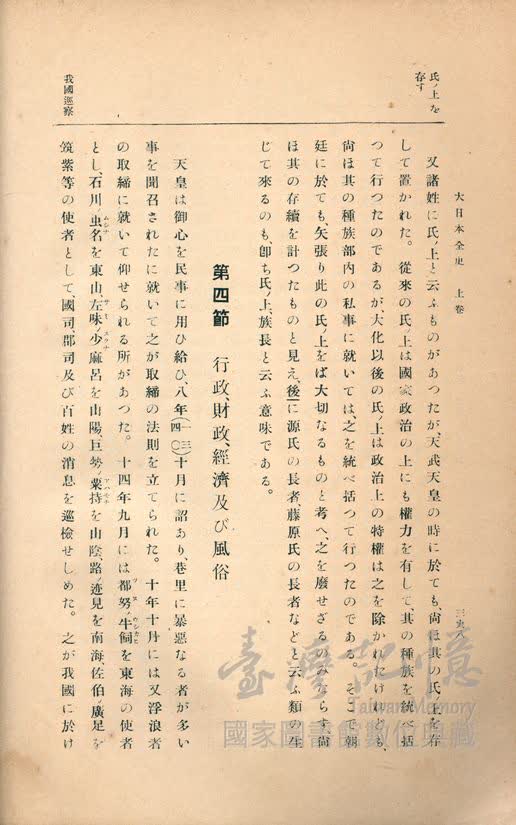 大日本全史 上卷
三九八
氏ノ上を
存す
又諸姓に氏ノ上と云ふものがあつたが、天武天皇の時に於ても、尙ほ其の氏ノ上を存
して置かれた。 從來の氏ノ上は國家政治の上にも權力を有して、其の種族を統べ括
つて行つたのであるが、大化以後の氏ノ上は政治上の特權は之を除かれたけれども、
尙ほ其の種族部內の私事に就いては、之を統べ括つて行つたのである。 そこで朝
廷に於ても、矢張り此の氏ノ上をば大切なるものと考へ、之を廢せざるのみならず、尙
ほ其の存續を計つたものと見え、後に源氏の長者、藤原氏の長者などと云ふ類の生
じて來るのも、卽ち氏ノ上、族長と云ふ意味である。
第四節 行政、財政、經濟及び風俗
天皇は御心を民事に用ひ給ひ、八年(一三四〇)十月に詔あり、巷里に暴惡なる者が多い
事を聞召されたに就いて之が取締の法則を立てられた。 十年十月には又浮浪者
の取締に就いて仰せられる所があつた。 十四年九月には都努ノ牛飼を東海の使者
とし、石川ノ虫名を東山、左味ノ少麻呂を山陽、巨勢ノ粟持を山陰、路ノ迹見を南海、佐伯ノ廣足を
筑紫等の使者として、國司、郡司及び百姓の消息を巡檢せしめた。 之が我國に於け
我國巡察
臺灣記憶
Taiwan Memory
國家圖書館數位典藏